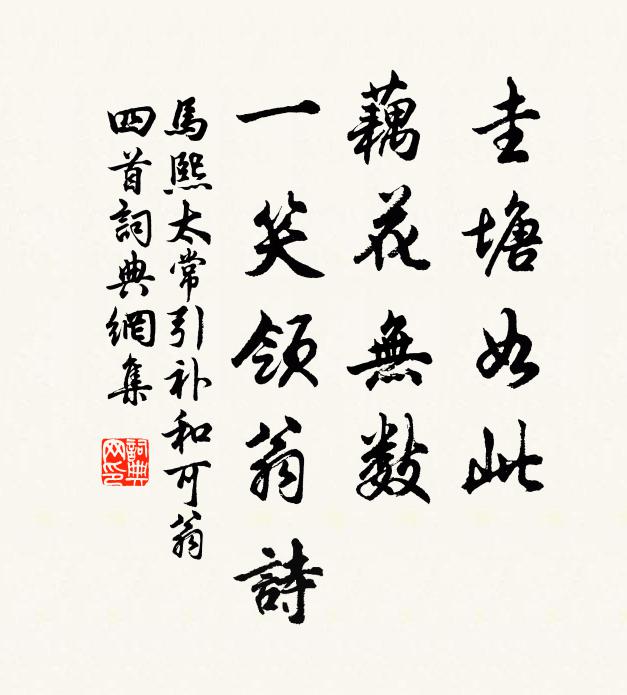 圭塘如此
藕花無數
一笑領翁詩
馬熙太常引补和可翁
四首詞典網集
詞典網印